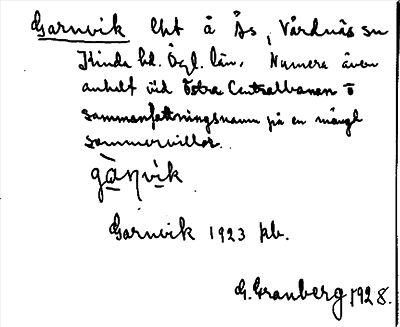 Garnvik lht å Ås, Vårdnäs sn
Kinda hd. Ögl. län. Numera även
anhalt vid Östra Centralbanan o
sammanfattningsnamn på en mängd
sommarvillor.
gàṇvik
Garnvik 1923 pb.
G. Granberg 1928.